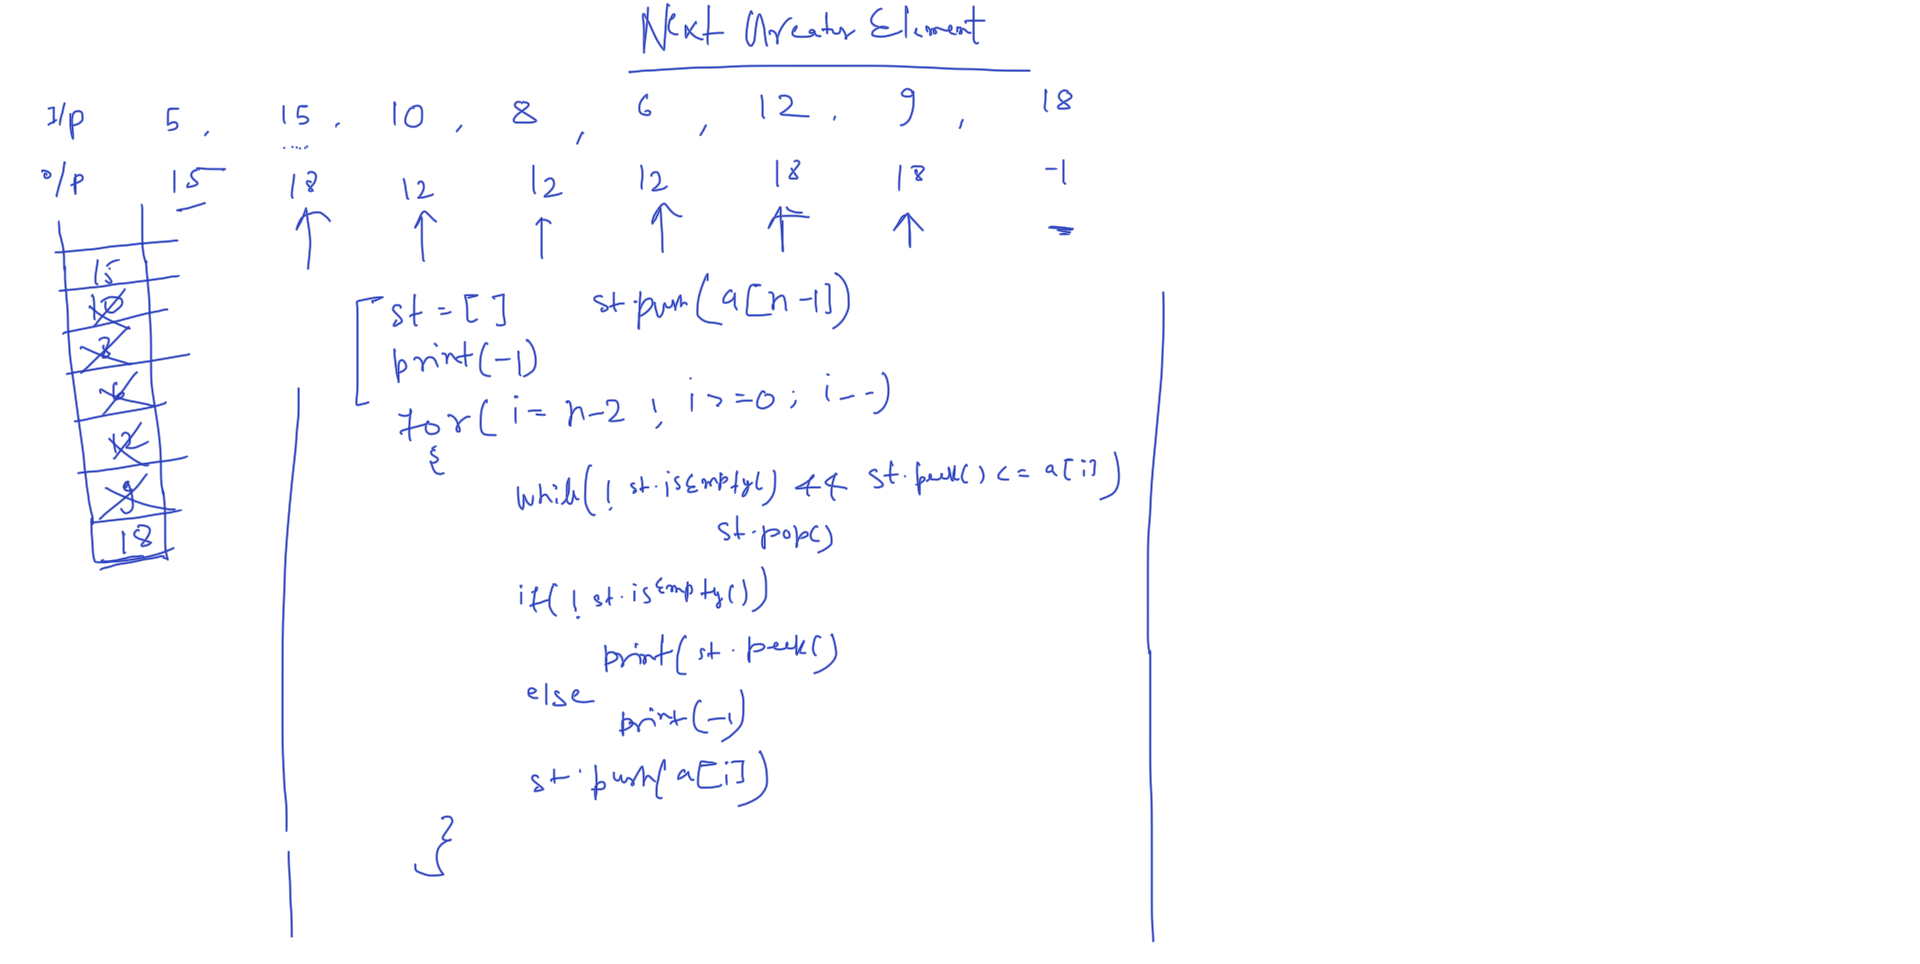 Next Greater Element
I/p 5, 15, 10, 8, 6, 12, 9, 18
o/p 15 18 12 12 12 18 18 -1
15
10
8
6
12
9
18
st = [ ] st.push(a[n-1])
print(-1)
for( i = n-2 ; i >= 0 ; i--)
{
while( ! st.isEmpty() && st.peek() <= a[i])
st.pop()
if( ! st.isEmpty())
print( st.peek()
else
print(-1)
st.push( a[i])
}